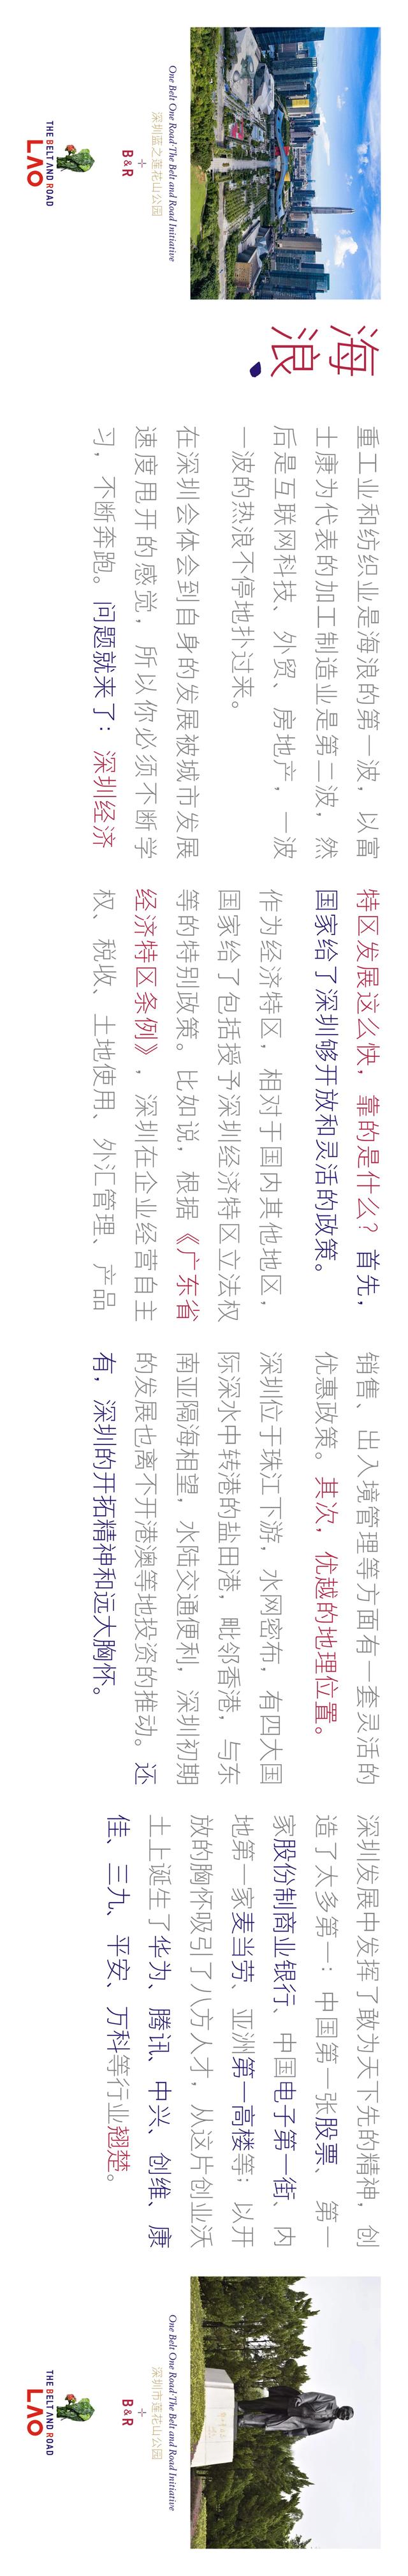 One Belt One Road·The Belt and Road Initiative
深圳蓝之莲花山公园
B&R
THE BELT AND ROAD
LAO
海
浪
重工业和纺织业是海浪的第一波，以富
士康为代表的加工制造业是第二波，然
后是互联网科技、外贸、房地产，一波
一波的热浪不停地扑过来。
在深圳会体会到自身的发展被城市发展
速度甩开的感觉，所以你必须不断学
习，不断奔跑。问题就来了：深圳经济
特区发展这么快，靠的是什么？首先，
国家给了深圳够开放和灵活的政策。
作为经济特区，相对于国内其他地区，
国家给了包括授予深圳经济特区立法权
等的特别政策。比如说，根据《广东省
经济特区条例》，深圳在企业经营自主
权、税收、土地使用、外汇管理、产品
销售、出入境管理等方面有一套灵活的
优惠政策。其次，优越的地理位置。
深圳位于珠江下游，水网密布，有四大国
际深水中转港的盐田港，毗邻香港，与东
南亚隔海相望，水陆交通便利，深圳初期
的发展也离不开港澳等地投资的推动。还
有，深圳的开拓精神和远大胸怀。
深圳发展中发挥了敢为天下先的精神，创
造了太多第一：中国第一张股票、第一
家股份制商业银行、中国电子第一街、内
地第一家麦当劳、亚洲第一高楼等；以开
放的胸怀吸引了八方人才，从这片创业沃
土上诞生了华为、腾讯、中兴、创维、康
佳、三九、平安、万科等行业翘楚。
One Belt One Road·The Belt and Road Initiative
深圳市莲花山公园
B&R
THE BELT AND ROAD
LAO